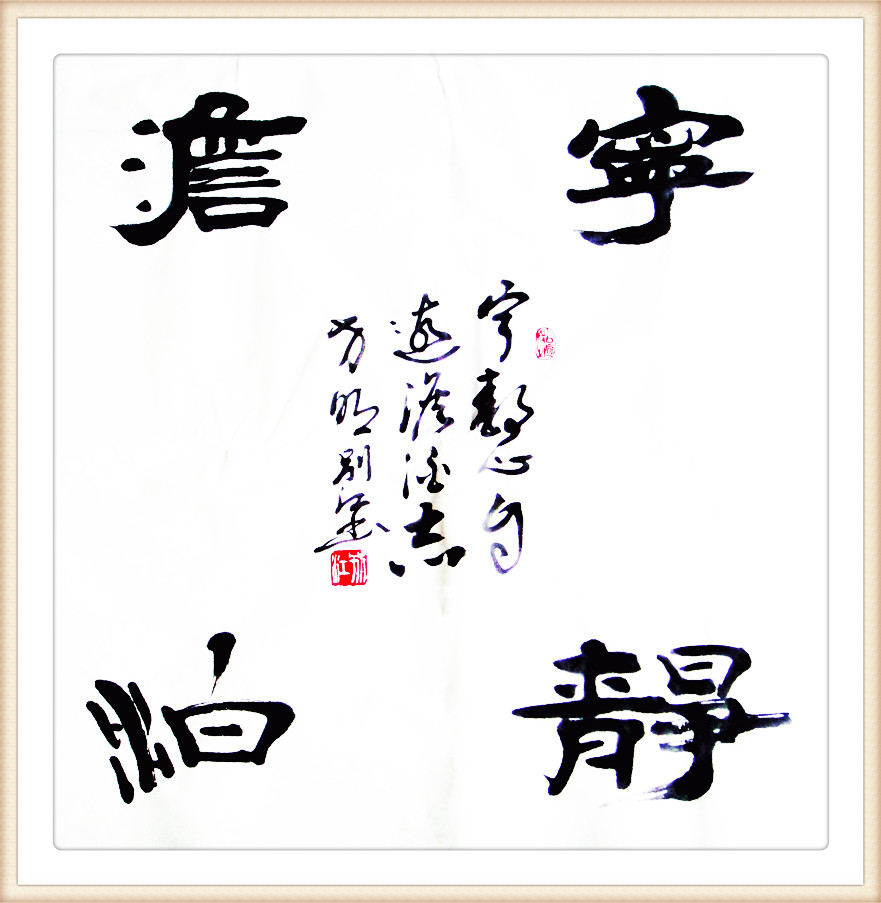 寧靜
澹泊
宁靜心自
遠澹泊志
方明別